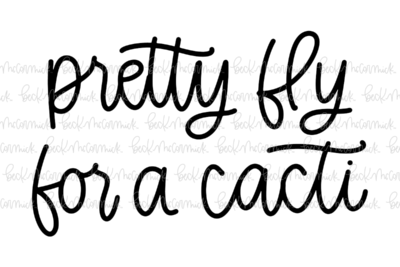 pretty fly
for a cacti